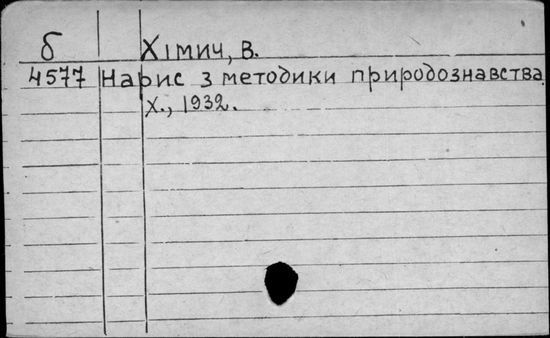 б Хімич, В.
4577 Нарис з методики природознавства
Х., 1932.